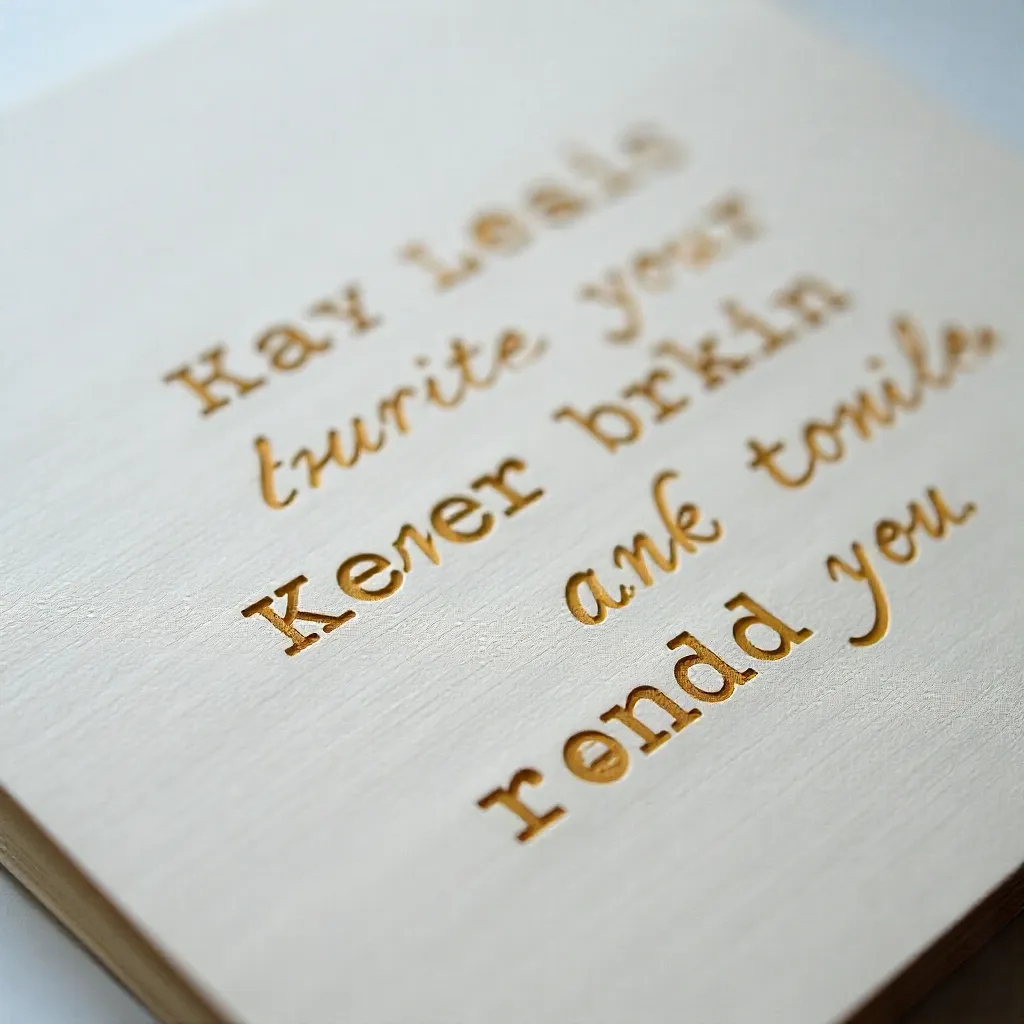 Kay Leals
turite your
Kerer brkin
ank tonile.
rendd you